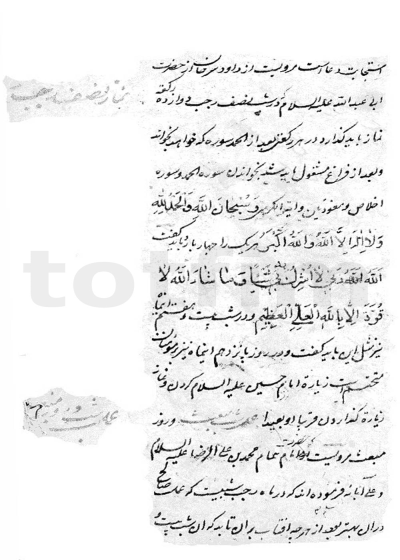 استجابت دعا است مرویست از داود سرحان از حضرت
ابی عبدالله علیه السلام که در شب نصف رجب دوازده رکعت
نماز نیمه رجب
نماز باید گذارد در هر رکعتی بعد از الحمد سوره که خواهد بخواند
و بعد از فراغ مشغول باید شد بخواندن سوره الحمد و سوره
اخلاص و معوذتین و ایة الکرسی و سُبْحانَ اللهِ وَالْحَمْدُ لِلّٰهِ
وَلا اِلٰهَ اِلَّا اللهُ وَاللهُ اَكْبَرُ هر یک را چهار بار باید گفت
اللهُ اللهُ رَبّی لا اُشْرِكُ بِهِ شَيْئاً ما شاءَ اللهُ لا
قُوَّةَ اِلّا بِاللهِ الْعَلِیِّ الْعَظیمِ و در شب بیست و هفتم
نیز مثل این باید گفت و در روز پانزدهم
زیارة امام حسین علیه السلام کردن و نماز
زیارة گذاردن قریبا او بعیدا عمل شب مبعث و روز
مبعث مرویست که امام محمد بن علی الرضا علیه السلام
و علی آبائه فرموده اند که در ماه رجب شبیست که عمل صالح
در آن بهتر بود از هر چه آفتاب بر آن تابد که آن شب بیست و